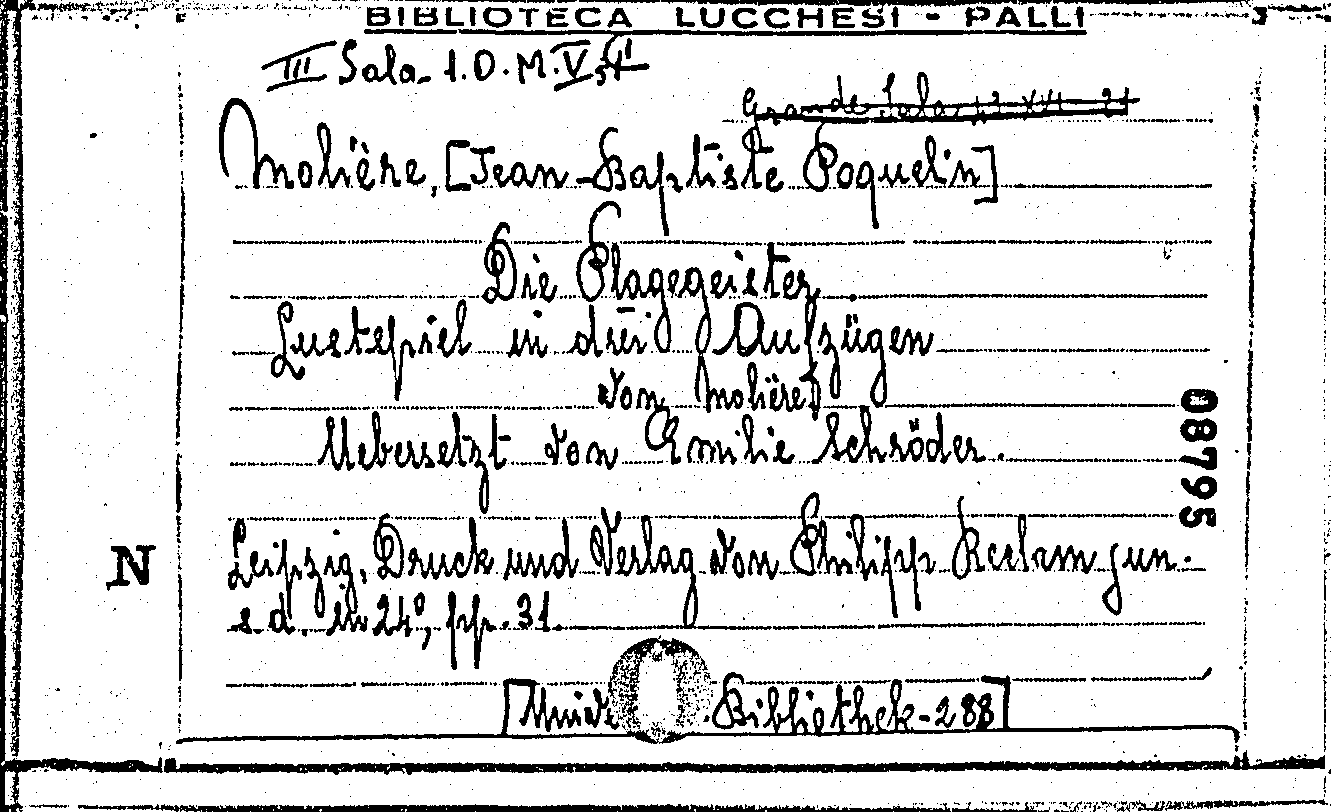 BIBLIOTECA LUCCHESI - PALLI
III Sala 1.D.M.V,
Grande Sala
Molière, [Jean-Baptiste Poquelin]
Die Plagegeister.
Lustspiel in drei Aufzügen
von Molière
Uebersetzt von Emilie Schröder.
08795
N
Leipzig, Druck und Verlag von Philipp Reclam jun.
s. d. in 24°, pp. 31.
[Bibliothek - 288]